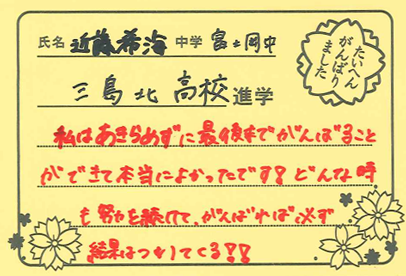 氏名 近藤希海 中学 富士岡中
たいへん
がんばり
ました
三島北高校進学
私はあきらめずに最後までがんばること
ができて本当によかったです!どんな時
も努力を続けて、がんばれば必ず
結果はついてくる!!